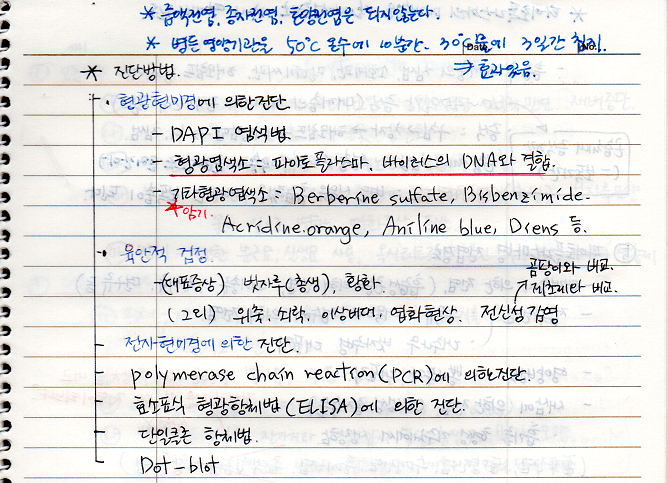 * 즙액전염, 종자전염, 토양전염은 되지않는다.
* 병든 영양기관을 50℃ 온수에 10분간. 30℃물에 3일간 처리.
⇒ 효과있음.
* 진단방법.
· 형광현미경에 의한진단.
- DAPI 염색법.
- 형광염색소 : 파이토플라스마, 바이러스의 DNA와 결합.
- 기타형광염색소 : Berberine sulfate, Bisbenzimide.
*암기
Acridine.orange, Aniline blue, Diens 등.
· 육안적 검정
곰팡이와 비교.
-(대표증상) 빗자루(총생), 황화
세균과 비교.
(그외) 위축, 쇠락, 이상비대, 엽화현상. 전신성감염
- 전자현미경에의한 진단.
- polymerase chain reaction(PCR)에 의한진단.
- 효소표식 형광항체법(ELISA)에 의한 진단.
- 단일클론 항체법.
- Dot-blot